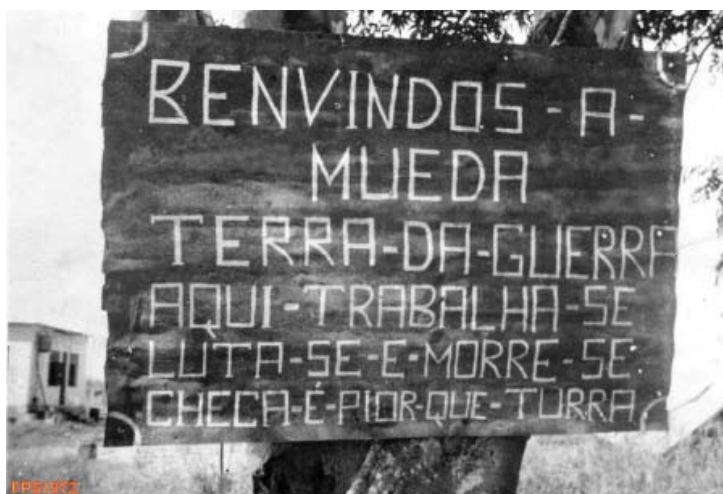 BENVINDOS - A -
MUEDA
TERRA-DA-GUERRA
AQUI-TRABALHA-SE
LUTA-SE-E-MORRE-SE
CHECA-É-PIOR-QUE-TURRA